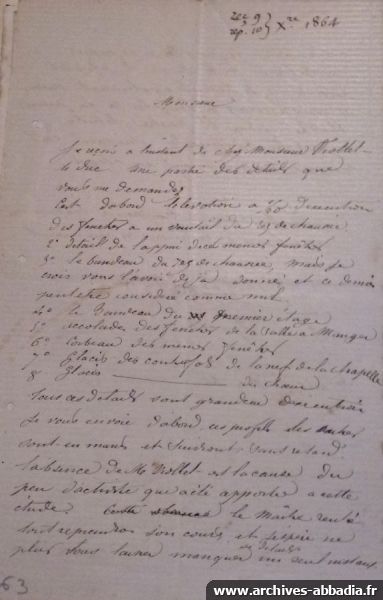 rec 9
rep. 10 } Xre 1864
Monsieur
Je reçois à l'instant de chez Monsieur Viollet
le duc une partie des détails que
vous me demandez
C'est d'abord l'élévation à d'exécution
des fenêtres à un vantail du rez de chaussée
2° détail de l'appui de ces mêmes fenêtres
3° le bandeau du rez de chaussée, mais je
crois vous l'avoir déjà donné et ce dernier
peut être considéré comme nul
4° le bandeau du premier étage
5° accolade des fenêtres de la salle à manger
6° Corbeau des mêmes fenêtres
7° Glacis des contreforts de la nef de la chapelle
8 Glacis du chœur
Tous ces détails sont grandeur d'exécution
Je vous envoie d'abord ces profils les autres
sont en mains et suivront sans retard
L'absence de Mr Viollet est la cause du
peu d'activité qui a été apporté à cette
étude le Maître rentré
tout reprendra son cours et j'espère ne
plus vous laisser manquer de détails un seul instant
63
www.archives-abbadia.fr